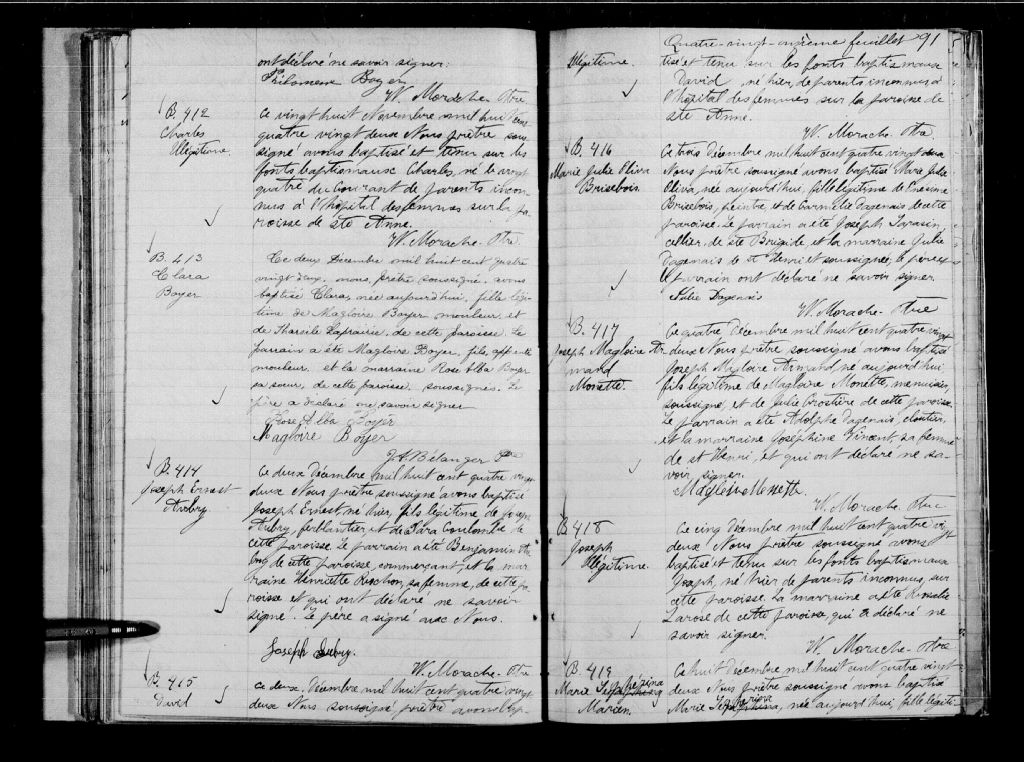 ont déclaré ne savoir signer.
Philomene Boyer
W. Morache Ptre
B. 412
Charles
Illégitime.
Ce vingt huit Novembre mil huit cent
quatre vingt deux Nous prêtre sous-
signé avons baptisé et tenu sur les
fonts baptismaux Charles, né le vingt
quatre du courant de parents incon-
nus à l'hôpital des femmes sur la pa-
roisse de ste Anne.
W. Morache Ptre
B. 413
Clara
Boyer
Ce deux Décembre mil huit cent quatre
vingt deux, nous, prêtre soussigné, avons
baptisé Clara, née aujourd'hui, fille légi-
time de Magloire Boyer mouleur et
de Tharsile Laprairie, de cette paroisse. Le
parrain a été Magloire Boyer, fils, apprenti
mouleur et la marraine Rose Alba Boyer
sa soeur, de cette paroisse, soussignés. Le
père a déclaré ne savoir signer
Rose Alba Boyer
Magloire Boyer
Bélanger Ptre
B. 414
Joseph Ernest
Aubry
Ce deux Décembre mil huit cent quatre vingt
deux Nous prêtre soussigné avons baptisé
Joseph Ernest, né hier, fils légitime de Joseph
Aubry, ferblantier, et de Coulombe de
cette paroisse. Le parrain a été Benjamin Au-
bry de cette paroisse, commerçant et la mar-
raine Henriette Rochon, sa femme, de cette pa-
roisse et qui ont déclaré ne savoir
signé. Le père a signé avec Nous.
Joseph Aubry.
W. Morache Ptre
B. 415
David
Ce deux Décembre mil huit cent quatre vingt
deux Nous soussigné prêtre avons bap-
Quatre-vingt-onzième feuillet 91
Illégitime.
tisé et tenu sur les fonts baptismaux
David, né hier, de parents inconnus à
l'hôpital des femmes sur la paroisse de
ste Anne.
W. Morache Ptre
B. 416
Marie Julie Oliva
Brisebois
Ce trois Décembre mil huit cent quatre vingt deux
Nous prêtre soussigné avons baptisé Marie Julie
Oliva, née aujourd'hui, fille légitime de Onesime
Brisebois, peintre, et de Carmelie Dagenais de cette
paroisse. Le parrain a été Joseph Sarasin,
sellier, de ste Brigide, et la marraine Julie
Dagenais de st Henri et soussignée, le père et
le parrain ont déclaré ne savoir signer.
Julie Dagenais
W. Morache Ptre
B. 417
Joseph Magloire Ar-
mand
Monette.
Ce quatre Décembre mil huit cent quatre vingt
deux Nous prêtre soussigné avons baptisé
Joseph Magloire Armand, né aujourd'hui,
fils légitime de Magloire Monette, menuisier,
soussigné, et de Julie Brostière de cette paroisse.
Le parrain a été Adolphe Dagenais, cloutier,
et la marraine Joséphine Vincent, sa femme
de st Henri, et qui ont déclaré ne sa-
voir signer.
Magloire Monette.
W. Morache Ptre
B 418
Joseph
Illégitime.
Ce cinq Décembre mil huit cent quatre vingt
deux Nous prêtre soussigné avons
baptisé et tenu sur les fonts baptismaux
Joseph, né hier de parents inconnus, sur
cette paroisse. La marraine a été Rosalie
Larose de cette paroisse, qui a déclaré ne
savoir signer.
W. Morache Ptre
B. 419
Marie
Marien.
Ce huit Décembre mil huit cent quatre vingt
deux Nous prêtre soussigné avons baptisé
Marie née aujourd'hui, fille légiti-